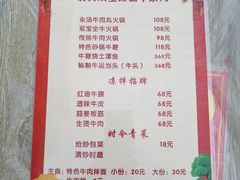 永汤牛肉丸火锅 108元
双宝全牛火锅 108元
传统牛肉火锅 98元
特色砂锅牛鞭 118元
牛鞭烧土潭鱼 368元
秘制牛运当头（牛头） 368元
凉拌招牌
红油牛腰 68元
透味牛皮 68元
蒜蓉板筋 68元
生烫牛肉 68元
时令青菜
炝炒包菜 18元
清炒时蔬
主食：特色牛肉拌面 小份：20元 大份：30元